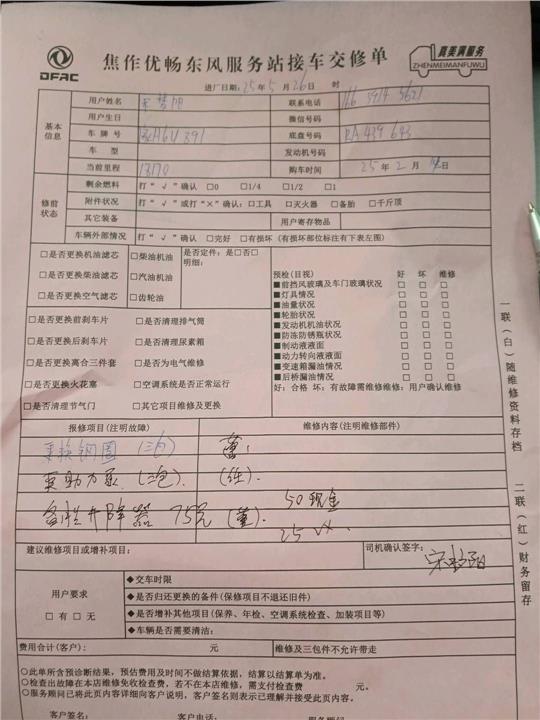 DFAC
焦作优畅东风服务站接车交修单
真美满服务
ZHENMEIMANFUWU
进厂日期: 25年5月26日 时
基本信息
用户姓名 联系电话
用户生日 微信号码
车牌号 底盘号码 RA439643
车型 发动机号码
当前里程 13170 购车时间 25年2月 日
修前状态
剩余燃料 打“√”确认 □0 □1/4 □1/2 □1
附件状况 打“√”或打“×”确认:□工具 □灭火器 □备胎 □千斤顶
其它装备 用户寄存物品
车辆外部情况 打“√”确认 □完好 □有损坏(有损坏部位标注有下表左图)
□是否更换机油滤芯 □柴油机油 是否定件:是□否□
明细:
□是否更换柴油滤芯 □汽油机油
□是否更换空气滤芯 □齿轮油
□是否更换前刹车片 □是否清理排气筒
□是否更换后刹车片 □是否清理尿素箱
□是否更换离合三件套 □是否为电气维修
□是否更换火花塞 □空调系统是否正常运行
□是否清理节气门 □其它项目维修及更换
预检(目视) 好 坏 维修
■前挡风玻璃及车门玻璃状况 □ □ □
■灯具情况 □ □ □
■油量状况 □ □ □
■轮胎状况 □ □ □
■发动机机油状况 □ □ □
■防冻防锈瓶状况 □ □ □
■制动液液面 □ □ □
■动力转向液液面 □ □ □
■变速箱漏油情况 □ □ □
■后桥漏油情况 □ □ □
好:合格 坏:有故障需维修维修:用户确认维修
报修项目(注明故障) 维修内容(注明维修部件)
更换钢圈(三包)
更助力泵(三包).
备胎升降器 75元
50现金
25
建议维修项目或增补项目: 司机确认签字:
用户要求
□有 □无
◆交车时限
◆是否归还更换的备件(保修项目不退还旧件)
◆是否增补其他项目(保养、年检、空调系统检查、加装项目等)
◆车辆是否需要清洁:
费用合计(客户): 元 维修及三包件不允许带走
○此单所含预诊断结果,预估费用及时间不做结算依据,结算以结算单为准。
○检查出故障在本店维修免收检查费,若不在本店维修,需支付检查费 元。
○服务顾问已将此页内容详细向客户说明,客户签名则表示已理解并接受此页内容。
客户签名: 客户电话: 服务顾问:
一联(白)随维修资料存档
二联(红)财务留存